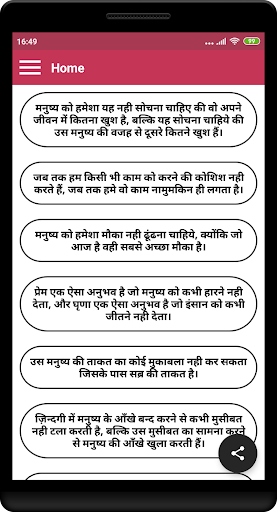 16:49
99
Home
मनुष्य को हमेशा यह नही सोचना चाहिए की वो अपने
जीवन में कितना खुश है, बल्कि यह सोचना चाहिये की
उस मनुष्य की वजह से दूसरे कितने खुश हैं।
जब तक हम किसी भी काम को करने की कोशिश नही
करते हैं, जब तक हमे वो काम नामुमकिन ही लगता है।
मनुष्य को हमेशा मौका नही ढूंढना चाहिये, क्योंकि जो
आज है वही सबसे अच्छा मौका है।
प्रेम एक ऐसा अनुभव है जो मनुष्य को कभी हारने नही
देता, और घृणा एक ऐसा अनुभव है जो इंसान को कभी
जीतने नही देता।
उस मनुष्य की ताकत का कोई मुकाबला नही कर सकता
जिसके पास सब्र की ताकत है।
ज़िन्दगी में मनुष्य के आँखे बन्द करने से कभी मुसीबत
नही टला करती है, बल्कि उस मुसीबत का सामना करने
से मनुष्य की आँखे खुला करती हैं।